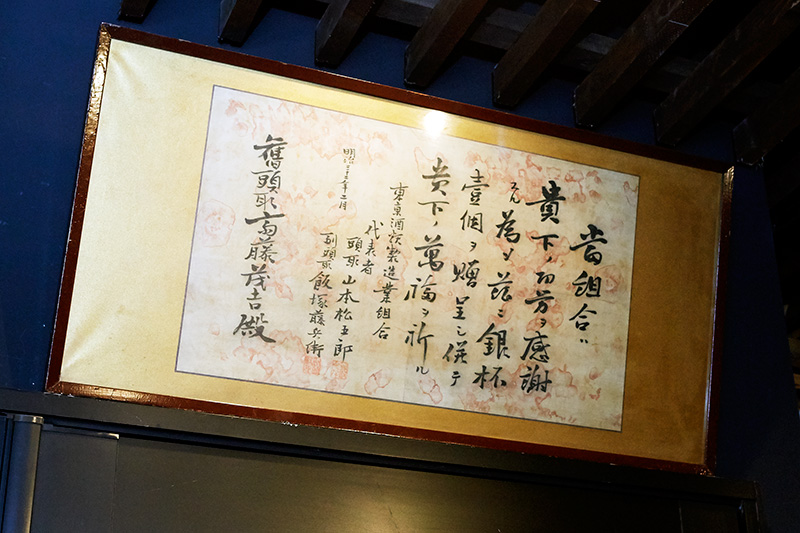 當組合ハ
貴下ノ功労ヲ感謝
為メ茲ニ銀杯
壹個ヲ贈呈シ併テ
貴下ノ萬福ヲ祈ル
東京酒類製造業組合
代表者
頭取 山本松五郎
副頭取 飯塚藤兵衛
明治 年二月
舊頭取斎藤茂吉殿